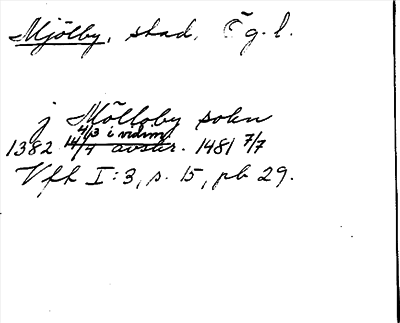 Mjölby, stad, Ög. l.
j Mölloby sokn
4/3 i vidim.
1382 14/4 avskr. 1481 7/7
Vfh I:3, s. 15, pb 29.